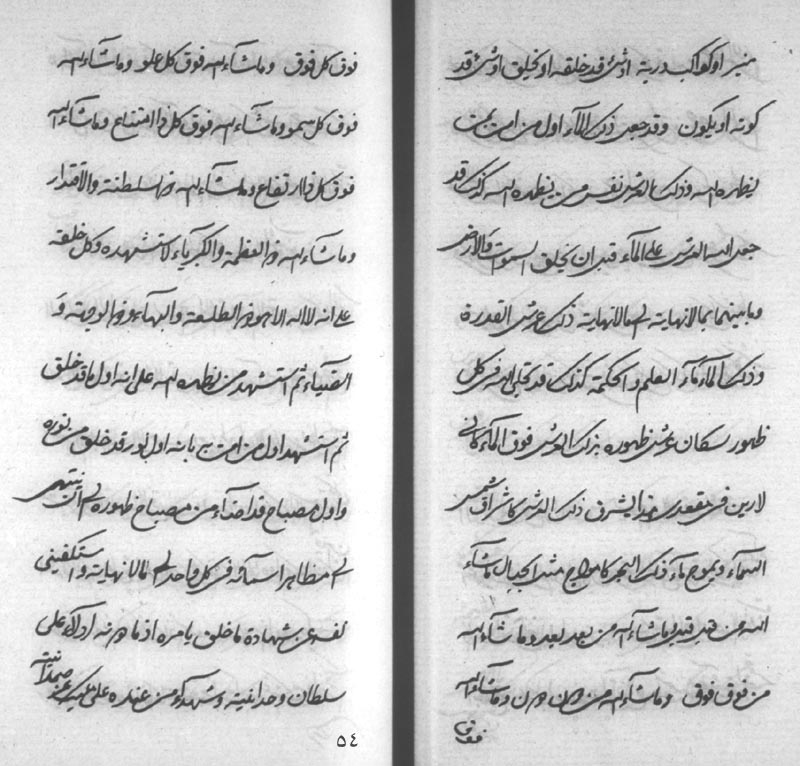 منیر او کواکب دریة او شئ قد خلقه او یخلق او شئ قد
کونه او یکون وقد جعل ذلک الماء اول من امن بمن
یظهره الله وذلک العرش نفس من یظهره الله کذلک قد
جعل الله العرش علی الماء قبل ان یخلق السموات والارض
وما بینهما بما لانهایته الی ما لانهایته ذلک عرش القدرة
وذلک الماء ماء العلم والحکمة کذلک قد تجلی الله فی کل
ظهور سکان عرش ظهوره بذلک العرش فوق الماء کانی
لارین فی مقعدی هذا یشرق ذلک العرش کاشراق شمس
السماء ویموج ماء ذلک البحر کامواج مثل الجبال ماشاء
الله من قبل قبل وماشاء الله من بعد بعد وماشاء الله
من فوق فوق وماشاء الله من دون دون وماشاء الله
فوق
فوق کل فوق وماشاء الله فوق کل علو وماشاء الله
فوق کل سمو وماشاء الله فوق کل ذا امتناع وماشاء الله
فوق کل ذا ارتفاع وماشاء الله ذو السلطنة والاقتدار
وماشاء الله ذو العظمة والکبریاء لاستشهده وکل خلقه
علی انه لا اله الا هو ذو الطلعة والبهاء وذو الوجهة و
الضیاء ثم استشهد من یظهره الله علی انه اول ما قد خلق
ثم استشهد اول من امن به بانه اول نور قد خلق من نوره
واول مصباح قد اضاء من مصباح ظهوره الی ان ینتهی
الی مظاهر اسمائه فی کل واحد الی ما لانهایته واستکفینی
لفسه عن شهادة ما خلق بامره اذ ما دونه ادلاء علی
سلطان وحدانیته وشهداء من عنده علی ملیک عز صمدانیته
٥٤